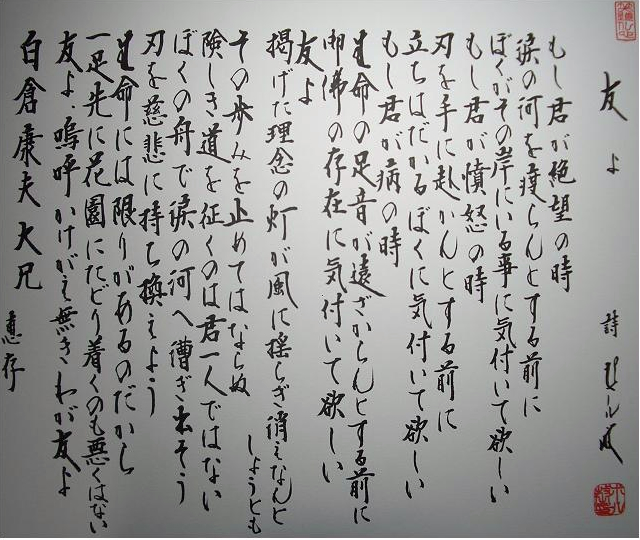 友よ
詩
もし君が絶望の時
涙の河を渡らんとする前に
ぼくがその岸にいる事に気付いて欲しい
もし君が憤怒の時
刃を手に赴かんとする前に
立ちはだかるぼくに気付いて欲しい
もし君が病の時
生命の足音が遠ざからんとする前に
御佛の存在に気付いて欲しい
友よ
掲げた理念の灯が風に揺らぎ消えなんと
しようとも
その歩みを止めてはならぬ
険しき道を征くのは君一人ではない
ぼくの舟で涙の河へ漕ぎ出そう
刃を慈悲に持ち換えよう
生命には限りがあるのだから
一足先に花園にたどり着くのも悪くはない
友よ、嗚呼かけがえ無きわが友よ
白倉康夫大兄
恵存